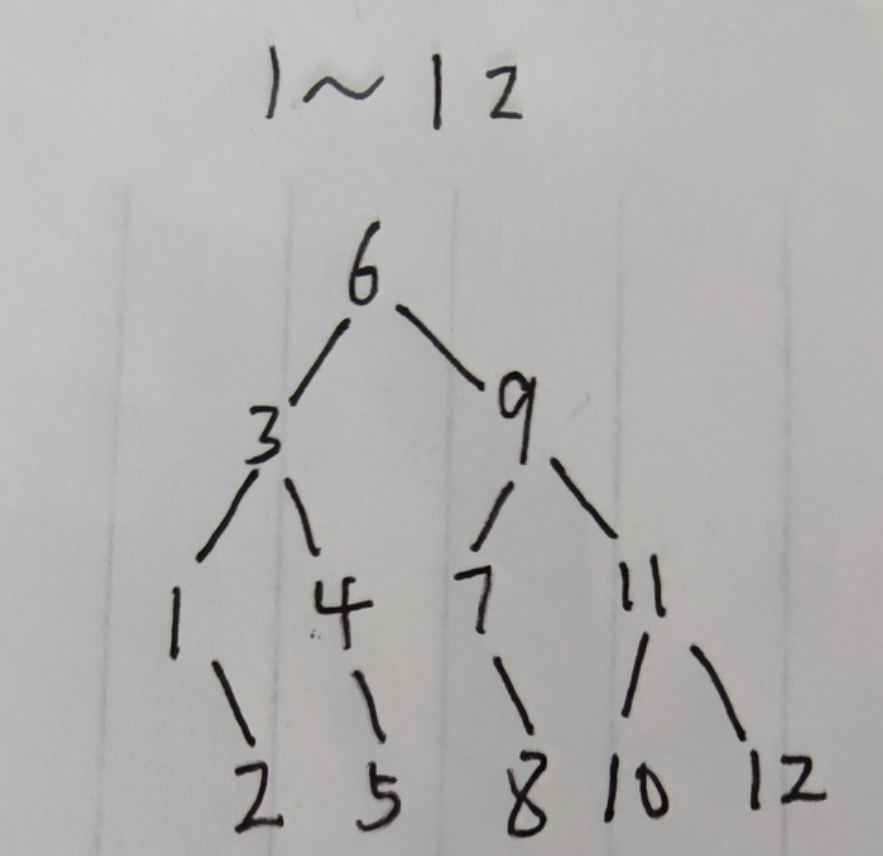 1~12
6
3 9
1 4 7 11
2 5 8 10 12